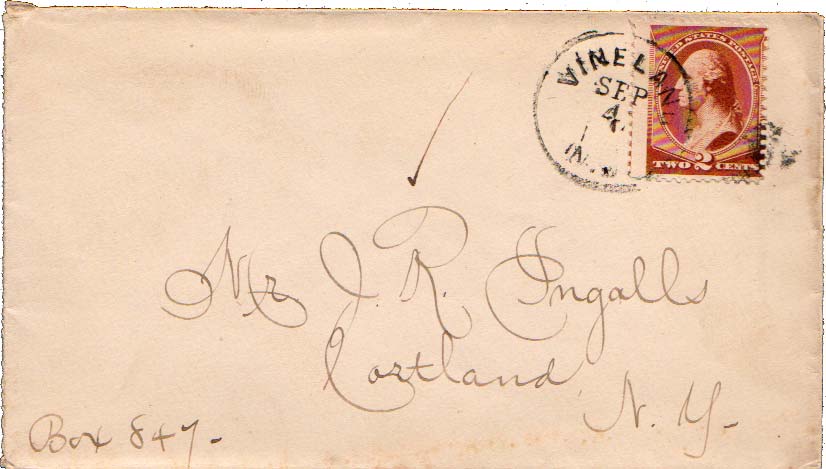 VINELAND
SEP
4
UNITED STATES POSTAGE
TWO 2 CENTS
Mr J. R. Ingalls
Cortland
N. Y.
Box 847.